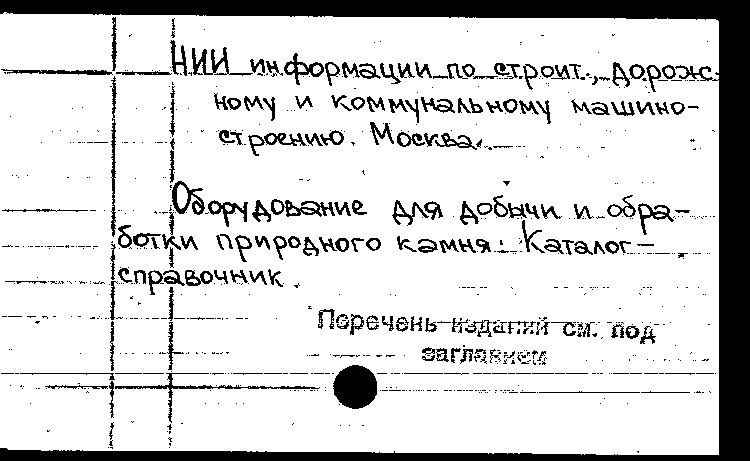 НИИ информации по строит., дорож-
ному и коммунальному машино-
строению. Москва.
Оборудование для добычи и обра-
ботки природного камня: Каталог-
справочник.
Перечень изданий см. под
заглавием